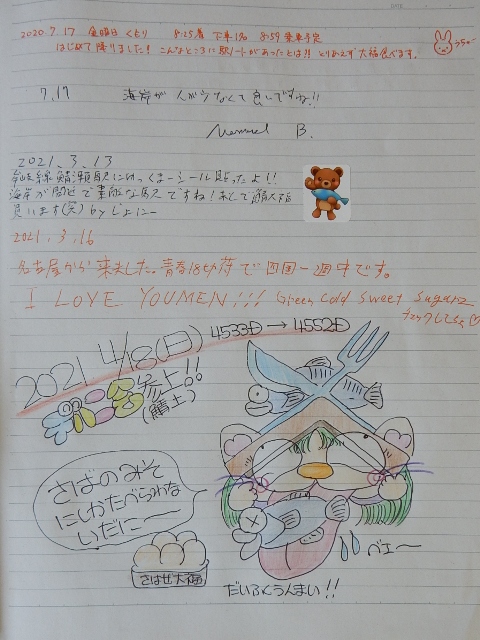 2020.7.17 金曜日 くもり 8:25着 下車 8:59乗車予定
はじめて降りました！こんなところに駅ノートがあったとは!! とりあえず大福食べます。
7.17 海岸が 人が少なくて良いですね!!
B.
2021.3.13
牟岐線鯖瀬駅にゆっくまーシール貼ったよ!!
海岸が間近で素敵な駅ですね！そして鯖大福
買います(笑) by じょにー
2021.3.16
名古屋から来ました。青春18切符で四国一周中です。
I LOVE YOUMEN!!! Green Cold Sweet Sugar
チェックしてね♡
2021 4/18(日) 4533D→4552D
参上!!
(鯖土)
さばのみそ
にしかたべられな
いだに──
さばせ大福
ベェ〜
だいふくうんまい!!